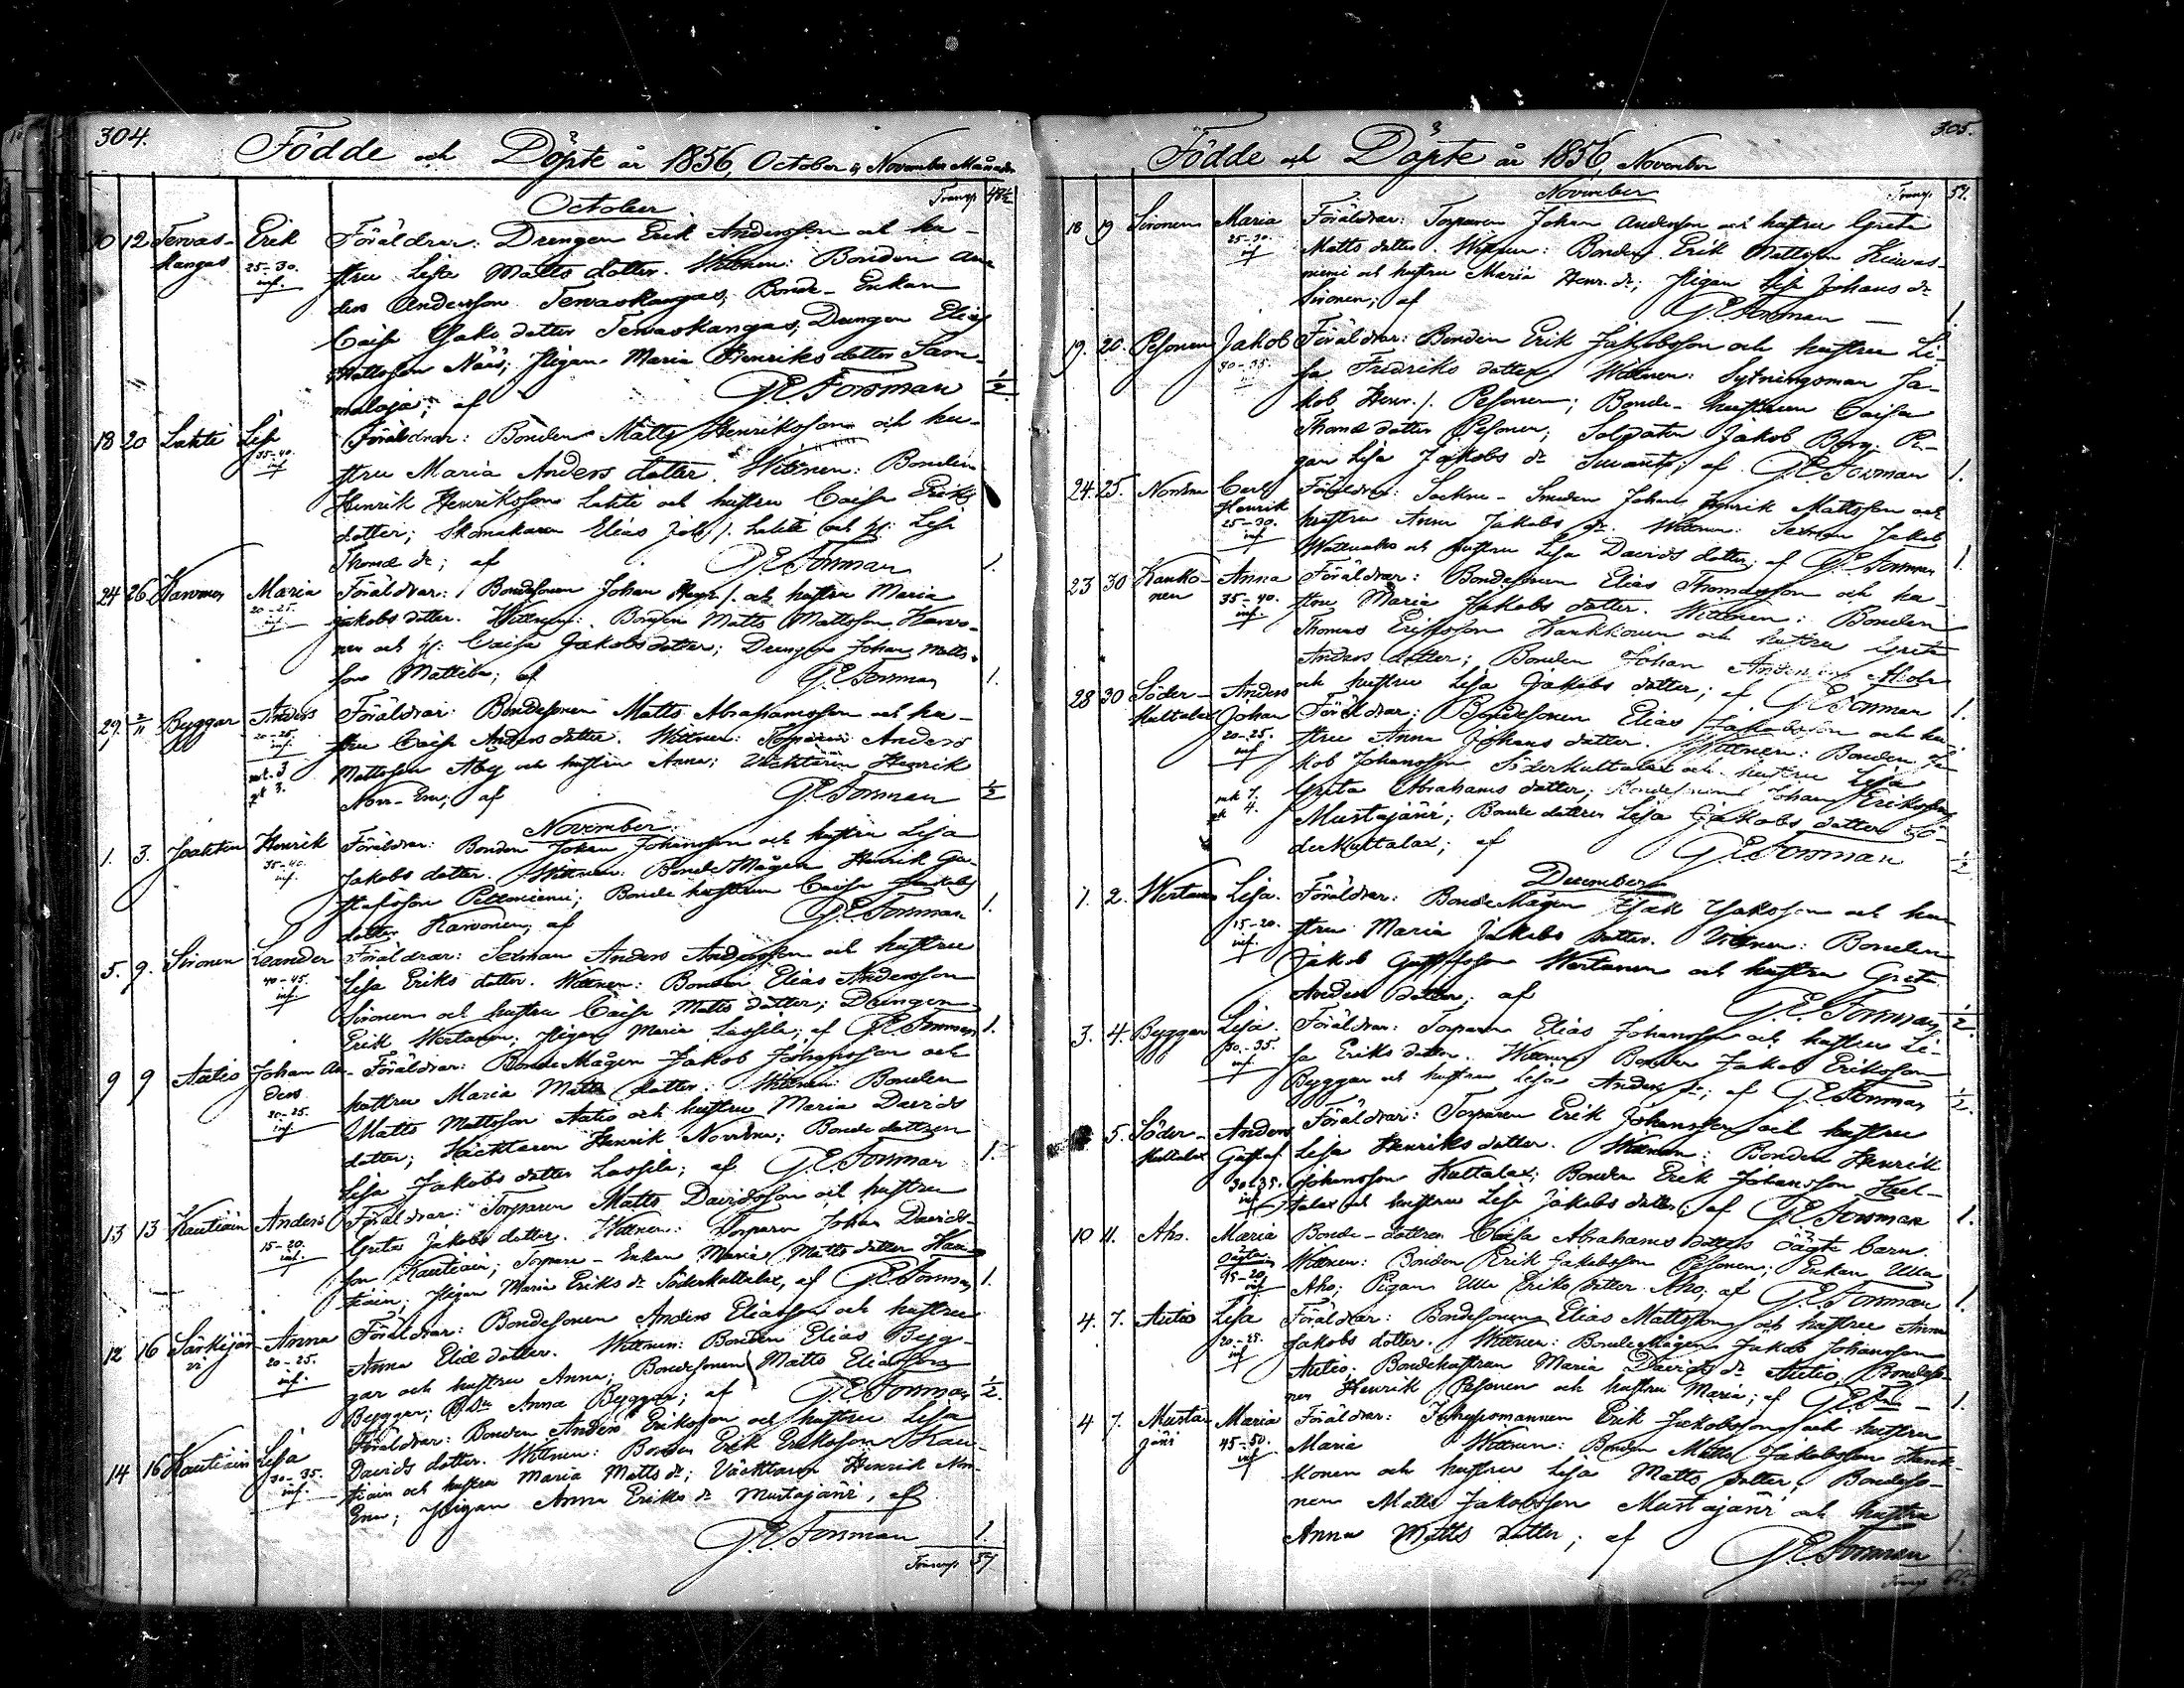 304.
Födde och Döpte år 1856, October & November Månader
Transp. 48½
October
10 12 Tervaskangas Erik 25-30. inf. Föräldrar: Drengen Erik Andersson och hu-
stru Lisa Matts dotter. Wittnen: Bonden An-
ders Andersson Tervaskangas, Bonde-Enkan
Caisa Jakobs dotter Tervaskangas, Drengen Elias
Mattsson Näas; Pigan Maria Henriks dotter Sam-
malaja; af G.E. Forsman ½
18 20 Lahti Lisa 35-40. inf Föräldrar: Bonden Matts Henriksson och hu-
stru Maria Anders dotter. Wittnen: Bonden
Henrik Henriksson Lahti och hustru Caisa Eriks
dotter; Skomakaren Elias Joh. s. Lahti och h: Lisa
Thomæ dr; af G.E. Forsman 1.
24 26 Karvonen Maria 20-25. inf. Föräldrar: Bondesonen Johan Henr. s. och hustru Maria
Jakobs dotter. Wittnen: Bonden Matts Mattsson Karvo-
nen och h: Caisa Jakobsdotter; Drengen Johan Matts-
son Mattila; af G.E. Forsman 1.
29. 2/11 Byggar Anders 20-25. inf. Föräldrar: Bondesonen Matts Abrahamsson och hu-
stru Caisa Anders dotter. Wittnen: Torparen Anders
Mattsson Aby och hustru Anna; Väcktaren Henrik
Norr-Ena; af G.E. Forsman ½
November
1. 3. Henrik 35-40. inf. Föräldrar: Bonden Johan Johansson och hustru Lisa
Jakobs dotter. Wittnen: BondeMågen Henrik Gu-
stafsson Peltoniemi; Bonde hustrun Caisa Jakobs
dotter Karvonen; af G.E. Forsman 1.
5. 9. Sironen Leander 40-45. inf Föräldrar: Sexman Anders Andersson och hustru
Lisa Eriks dotter. Wittnen: Bonden Elias Andersson
Sironen och hustru Caisa Matts dotter; Drengen
Erik Wertanen; Pigan Maria Lassila; af G.E. Forsman 1.
9 9 Autio Johan Anders 20-25. inf. Föräldrar: BondeMågen Jakob Johansson och
hustru Maria Matts dotter. Wittnen: Bonden
Matts Mattsson Autio och hustru Maria Davids
dotter; Väcktaren Henrik Norrena; Bonde dottren
Lisa Jakobs dotter Lassila; af G.E. Forsman 1.
13 13 Kautiain Anders 15-20. inf. Föräldrar: Torparen Matts Davidsson och hustru
Greta Jakobs dotter. Wittnen: Torparen Johan Davids-
son Kautiain; Torpare-Enkan Maria Matts dotter Kau-
tiain; Pigan Maria Eriks dr Söderkultalax, af G.E. Forsman 1.
12 16 Särkijärvi Anna 20-25. inf. Föräldrar: Bondesonen Anders Eliasson och hustru
Anna Eliæ dotter. Wittnen: Bonden Elias Bygg-
gar och hustru Anna; Bondesonen Matts Eliasson
Byggar; B.dr Anna Byggar; af G.E. Forsman ½.
14 16 Kautiain Lisa 30-35. inf. Föräldrar: Bonden Anders Eriksson och hustru Lisa
Davids dotter. Wittnen: Bonden Erik Eriksson Kau-
tiain och hustru Maria Matts dr; Väcktaren Henrik Norr
Ena; Pigan Anna Eriks dr Mustajärvi, af
G.E. Forsman 1.
Transp. 57
305.
Födde och Döpte år 1856, November
November Transp. 57.
18 19 Sironen Maria 25-30. inf Föräldrar: Torparen Johan Andersson och hustru Greta
Matts dotter. Wittnen: Bonden Erik Mattsson
niemi och hustru Maria Henr. dr; Pigan Lisa Johans dr
Sironen; af G.E. Forsman 1.
19. 20. Pesonen Jakob 30-35. Föräldrar: Bonden Erik Jakobsson och hustru Li-
sa Fredriks dotter. Wittnen: Sytningsman Ja-
kob Henr. s. Pesonen; Bonde-hustrun Caisa
Thomæ dotter Pesonen; Soldaten Jakob Berg. Pi-
gan Lisa Jakobs dr; af G.E. Forsman 1.
24. 25. Norrena Carl Henrik 25-30. inf Föräldrar: Sockne-Smeden Johan Henrik Mattsson och
hustru Anna Jakobs dr. Wittnen: Sexman Jakob
och hustru Lisa Davids dotter; af G.E. Forsman 1.
23 30 Kankonen Anna 35-40. inf. Föräldrar: Bondesonen Elias Thomasson och hu-
stru Maria Jakobs dotter. Wittnen: Bonden
Thomas Eriksson Kankkonen och hustru Greta
Anders dotter; Bonden Johan Andersson
och hustru Lisa Jakobs dotter; af G.E. Forsman 1.
28 30 Söder-Kultalax Anders Johan 20-25. inf Föräldrar: Bondesonen Elias Jakobsson och hu-
stru Anna Johans dotter. Wittnen: Bonden Ja-
kob Johansson Söderkultalax och hustru Lisa
Greta Abrahams dotter; Bondesonen Johan Eriksson
Mustajärvi; Bonde dottren Lisa Jakobs dotter Sö-
derkultalax; af G.E. Forsman ½
December
1. 2. Wertanen Lisa. 15-20. inf. Föräldrar: BondeMågen Isak Isaksson och hu-
stru Maria Jakobs dotter. Wittnen: Bonden
Jakob Gustafsson Wertanen och hustru Greta
Anders dotter; af G.E. Forsman ½.
3. 4. Byggar Lisa. 30-35. inf. Föräldrar: Torparen Elias Johansson och hustru Li-
sa Eriks dotter. Wittnen: Bonden Jakob Eriksson
Byggar och hustru Lisa Anders dr; af G.E. Forsman ½.
5. Söder-Kultalax Anders Gustaf 30-35. inf Föräldrar: Torparen Erik Johansson och hustru
Lisa Henriks dotter. Wittnen: Bonden Henrik
Johansson Kultalax; Bonden Erik Johansson Kul-
talax och hustru Lisa Jakobs dotter; af G.E. Forsman 1.
10 11. Aho. Maria oägta 15-20. inf Bonde-dottren Caisa Abrahams dotters oägta barn.
Wittnen: Bonden Erik Jakobsson Pesonen; Enkan Ulla
Aho; Pigan Ulla Eriks dotter Aho; af G.E. Forsman 1.
4. 7. Autio Lisa 20-25. inf Föräldrar: Bondesonen Elias Mattsson och hustru Anna
Jakobs dotter. Wittnen: BondeMågen Jakob Johansson
Autio; Bondehustrun Maria Davids dr Autio, Bondeso-
nen Henrik Pesonen och hustru Maria; af G.E. Fn 1.
4 7. Mustajärvi Maria 45-50. inf Föräldrar: Inhysesmannen Erik Jakobsson och hustru
Maria Wittnen: Bonden Matts Jakobsson Kank-
konen och hustru Lisa Matts dotter; Bondeso-
nen Matts Jakobsson Mustajärvi och hustru
Anna Matts dotter; af G.E. Forsman 1.
Transp.